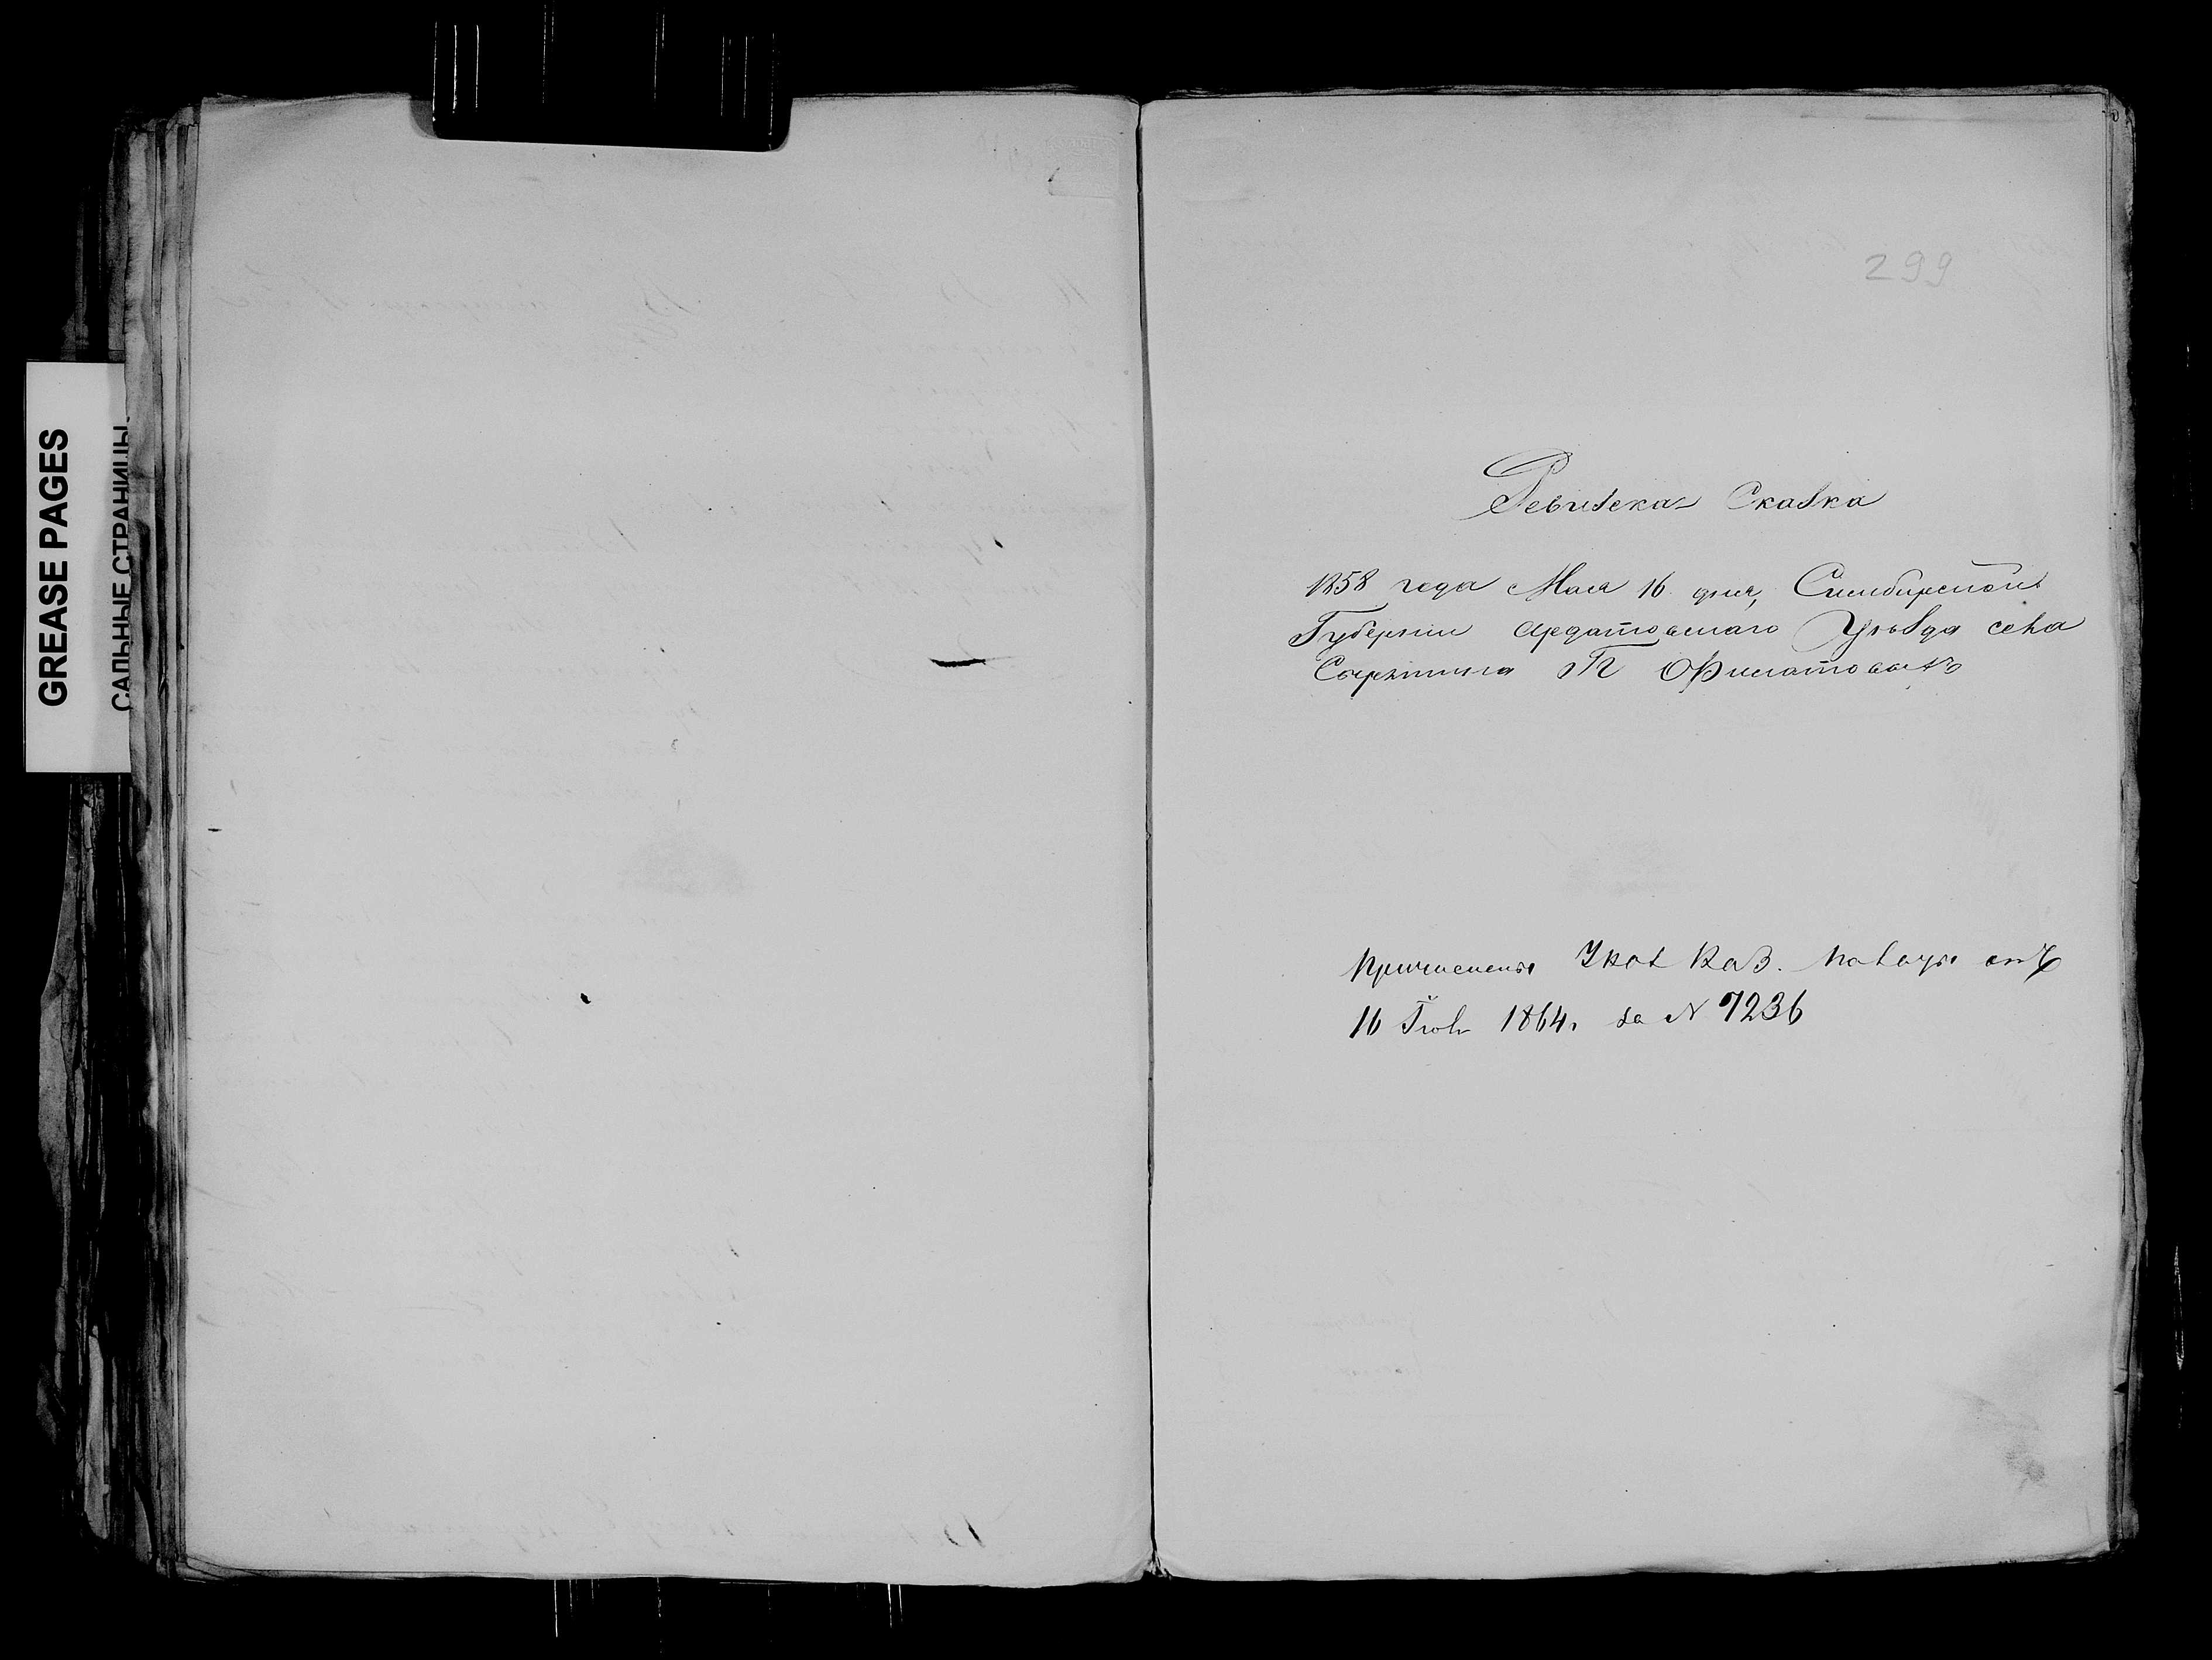 GREASE PAGES
САЛЬНЫЕ СТРАНИЦЫ
299
Ревизска Сказка
1858 года Мая 16 дня, Симбирской
Губернии Ардатовскаго Уѣзда села
Г Филатовыхъ
Причислены Указ Каз. Палаты отъ
16 Іюл 1864. за N 7236